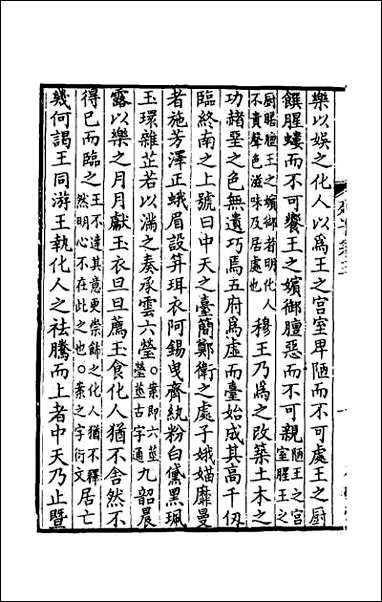 樂以娛之化人以爲王之宫室卑陋而不可處王之厨
饌腥螻而不可饗王之嬪御膻惡而不可親陋王之宫室腥王之
厨膳膻王之嬪御者明化人不貴聲色滋味及居處也穆王乃爲之改築土木之
功赭堊之色無遺巧焉五府爲虛而臺始成其高千仞
臨終南之上號曰中天之臺簡鄭衛之處子娥媌靡曼
者施芳澤正娥眉設筓珥衣阿錫曳齊紈粉白黛黑珮
玉環雜芷若以滿之奏承雲六瑩○案即六莖瑩莖古字通九韶晨
露以樂之月月獻玉衣旦旦薦玉食化人猶不舍然不
得已而臨之王不達其意更崇飾之化人猶不釋然明心不在此之也○案之字衍文居亡
幾何謁王同游王執化人之袪騰而上者中天乃止暨